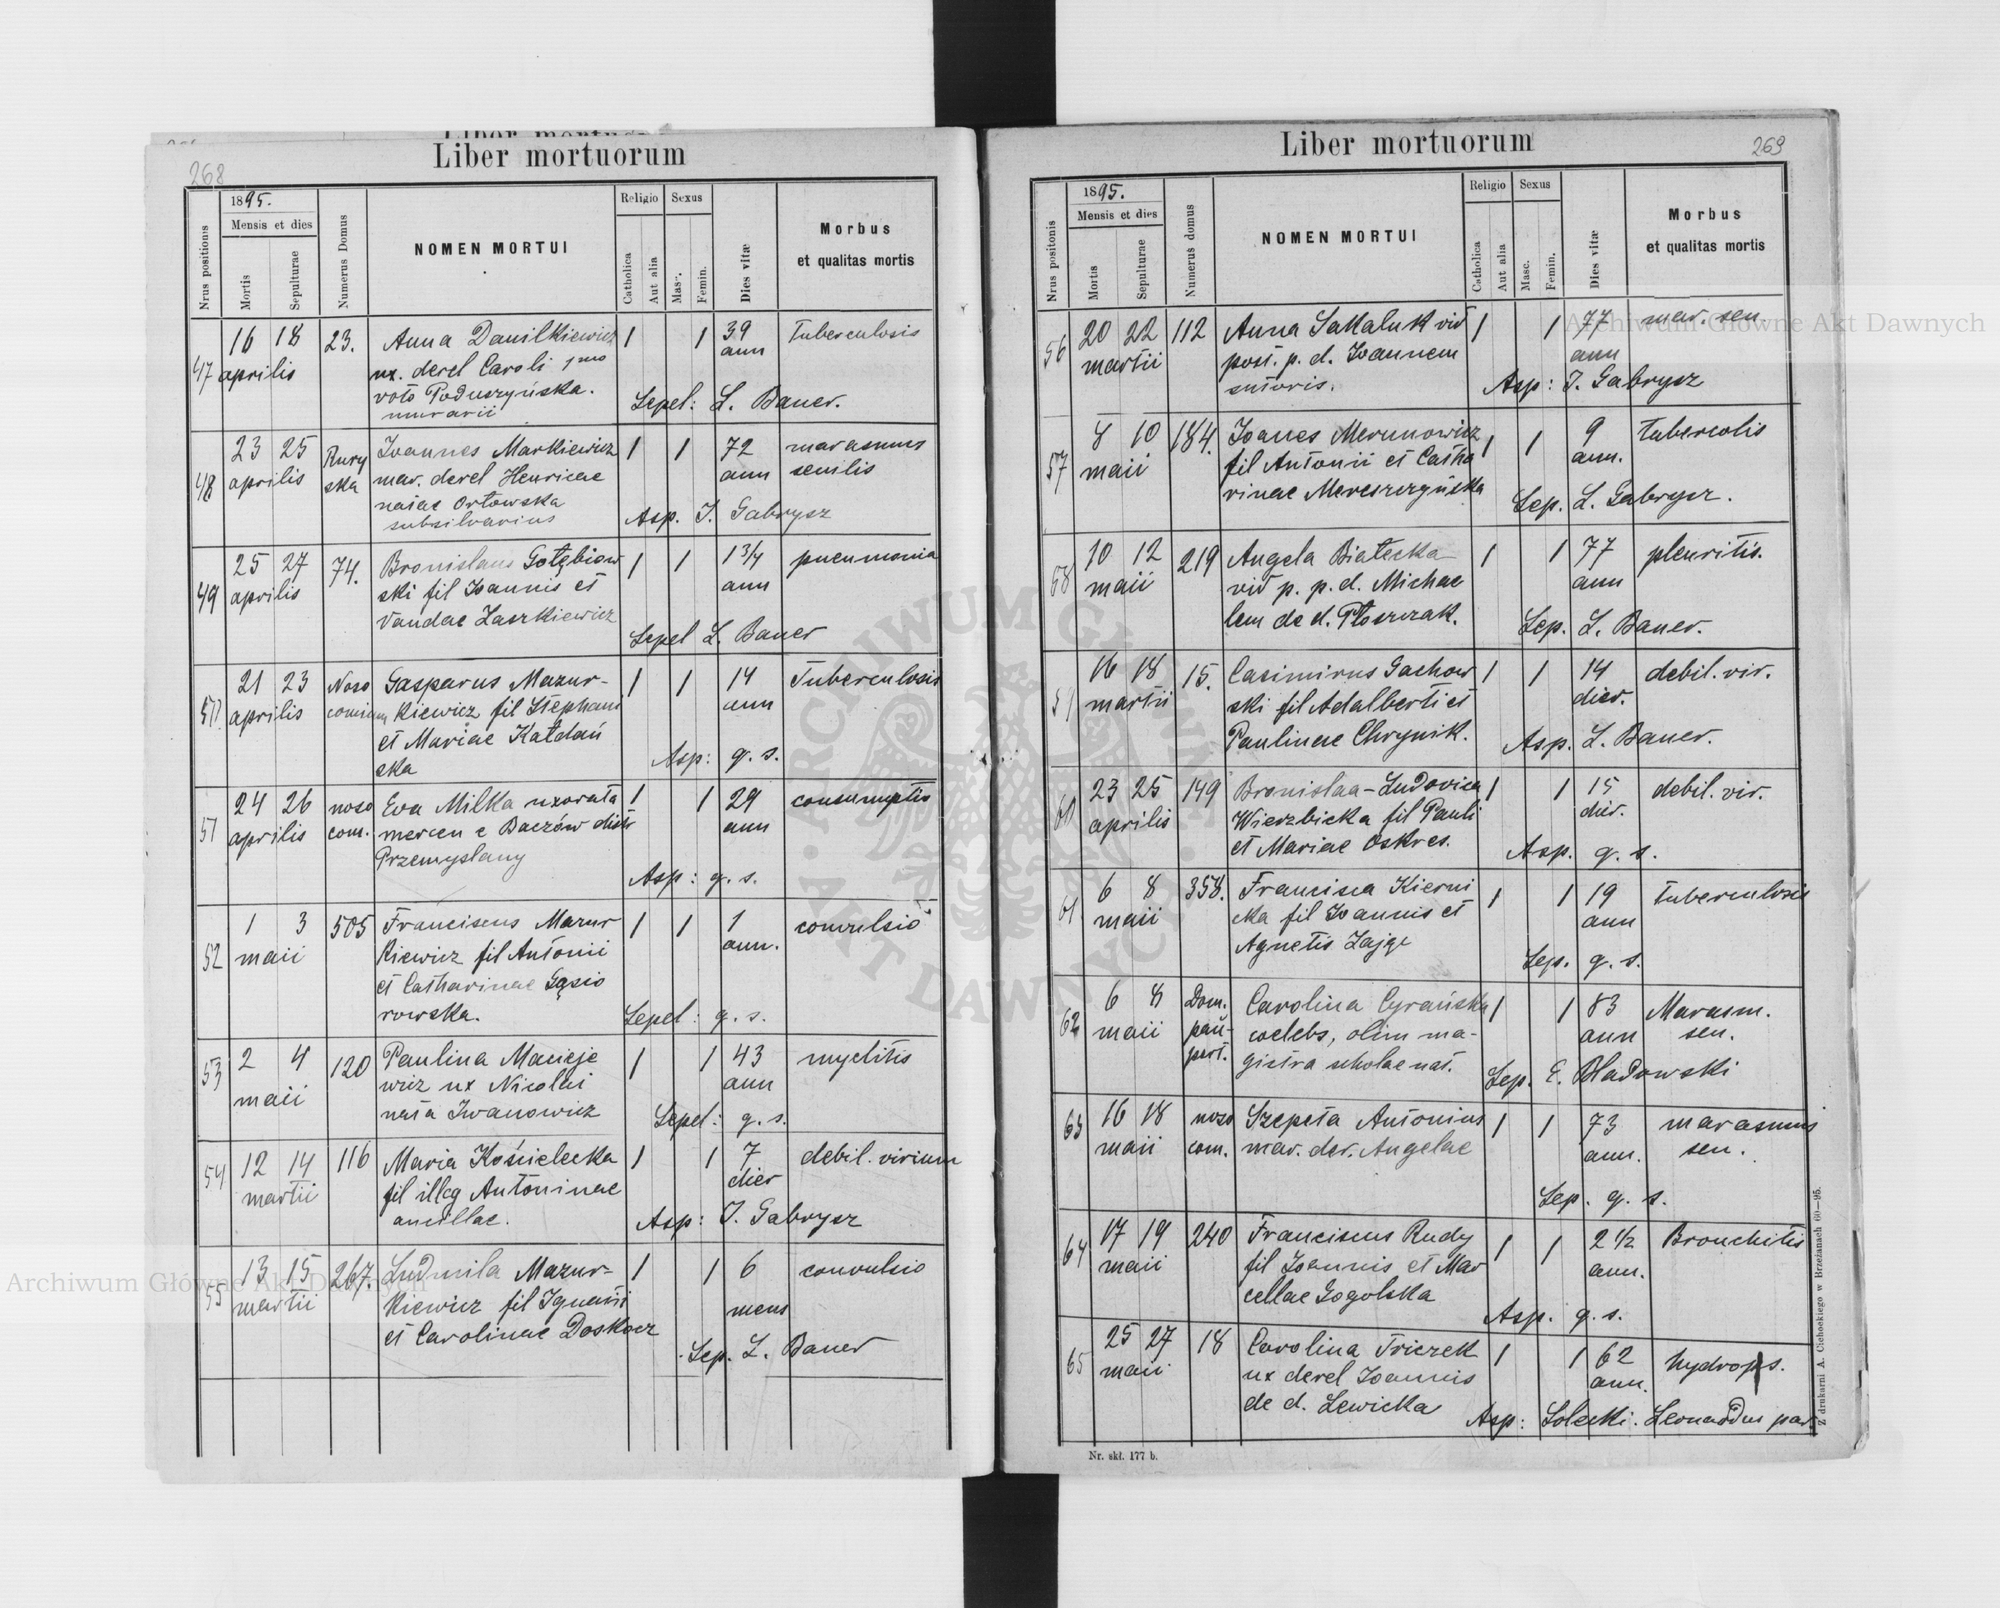 Liber mortuorum
268
1895.
Religio Sexus
Mensis et dies
Nrus positionis
Mortis
Sepulturae
Numerus Domus
NOMEN MORTUI
Catholica
Aut alia
Masc.
Femin.
Dies vitæ
Morbus
et qualitas mortis
47 16 18 23. Anna Danilkiewicz 1 1 39 Tuberculosis
aprilis ux. derel Caroli 1mo ann
voto Poduszyńska.
murarii Sepel: L. Bauer.
48 23 25 Rury Joannes Markiewicz 1 1 72 marasmus
aprilis ska mar. derel Henricae ann senilis
natae Orłowska
subsilvarius Asp. J. Gabrysz
49 25 27 74. Bronislaus Gołębiow 1 1 1 3/4 pneumonia
aprilis ski fil Joannis et ann
Vandae Laszkiewicz Sepel L. Bauer
50 21 23 Noso Gasparus Mazur- 1 1 14 Tuberculosis
aprilis comium kiewicz fil Stephani ann
et Mariae Kałdań
ska Asp: q. s.
51 24 26 noso Eva Milka uxorata 1 1 29 consumptio
aprilis com. mercen e Baczów distr ann
Przemyslany
Asp: q. s.
52 1 3 505 Franciscus Mazur 1 1 1 convulsio
maii kiewicz fil Antonii ann.
et Catharinae Gąsio
rowska. Sepel: q. s.
53 2 4 120 Paulina Macieje 1 1 43 myelitis
maii wicz ux Nicolai ann
nata Iwanowicz Sepel: q. s.
54 12 14 116 Maria Kościelecka 1 1 7 debil. virium
martii fil illeg Antoninae dier
ancillae. Asp: J. Gabrysz
55 13 15 267. Ludmila Mazur- 1 1 6 convulsio
martii kiewicz fil Ignatii mens
et Carolinae Doskocz
Sep. L. Bauer
Liber mortuorum
269
1895.
Religio Sexus
Mensis et dies
Nrus positonis
Mortis
Sepulturae
Numerus domus
NOMEN MORTUI
Catholica
Aut alia
Masc.
Femin.
Dies vitæ
Morbus
et qualitas mortis
56 20 22 112 Anna Sakaluk vid 1 1 77 mar. sen.
martii post. p. d. Joannem ann
sutoris. Asp: J. Gabrysz
57 8 10 184. Joanes Merunowicz 1 1 9 tubercolis
maii fil Antonii et Catha ann.
rinae Mereszczyńska Sep. L. Gabrysz.
58 10 12 219 Angela Białecka 1 1 77 pleuritis.
maii vid p. p. d. Michae ann
lem de d. Płoszczak. Sep. L. Bauer.
59 16 18 15. Casimirus Gachow 1 1 14 debil. vir.
martii ski fil Adalberti et dier.
Paulinae Chrynik. Asp. L. Bauer.
60 23 25 149 Bronislaa-Ludovica 1 1 15 debil. vir.
aprilis Wierzbicka fil Pauli dier.
et Mariae Oskres. Asp. q. s.
61 6 8 358. Francisca Kierni 1 1 19 Tuberculosis
maii cka fil Joannis et ann
Agnetis Zajge Sep. q. s.
62 6 8 Dom. Carolina Cyrańska 1 1 83 Marasm.
maii pau- coelebs, olim ma- ann sen.
pert. gistra scholae nat. Sep. E. Hadowski
63 16 18 noso Szepeta Antonius 1 1 73 marasmus
maii com. mar. der. Angelae ann. sen.
Sep. q. s.
64 17 19 240 Franciscus Rudy 1 1 2 1/2 Bronchitis
maii fil Joannis et Mar ann.
cellae Gogolska Asp. q. s.
65 25 27 18 Carolina Triczek 1 1 62 hydrops.
maii ux derel Joannis ann.
de d. Lewicka Asp: Solecki. Leonardus par.
Nr. skł. 177 b.
Z drukarni A. Cichockiego w Brzeżanach 60—95.
Archiwum Główne Akt Dawnych
Archiwum Główne Akt Dawnych
ARCHIWUM GŁÓWNE · AKT DAWNYCH ·